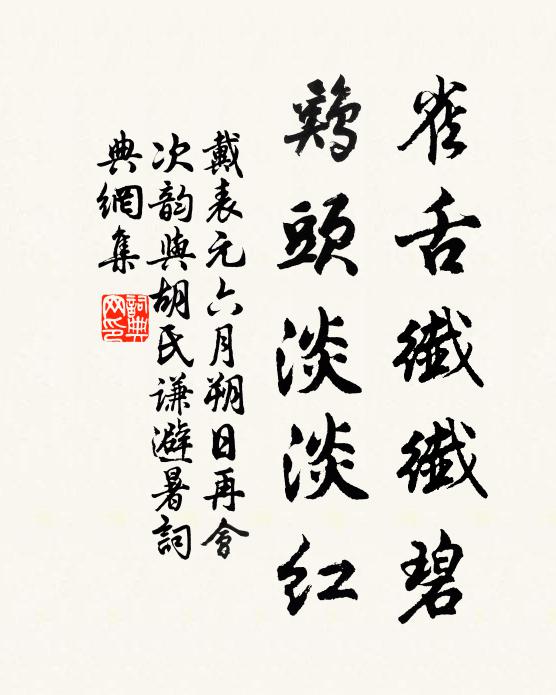 雀舌纖纖碧
鷄頭淡淡紅
戴表元六月朔日再會
次韵與胡氏谦避暑詞
典網集
詞典網印